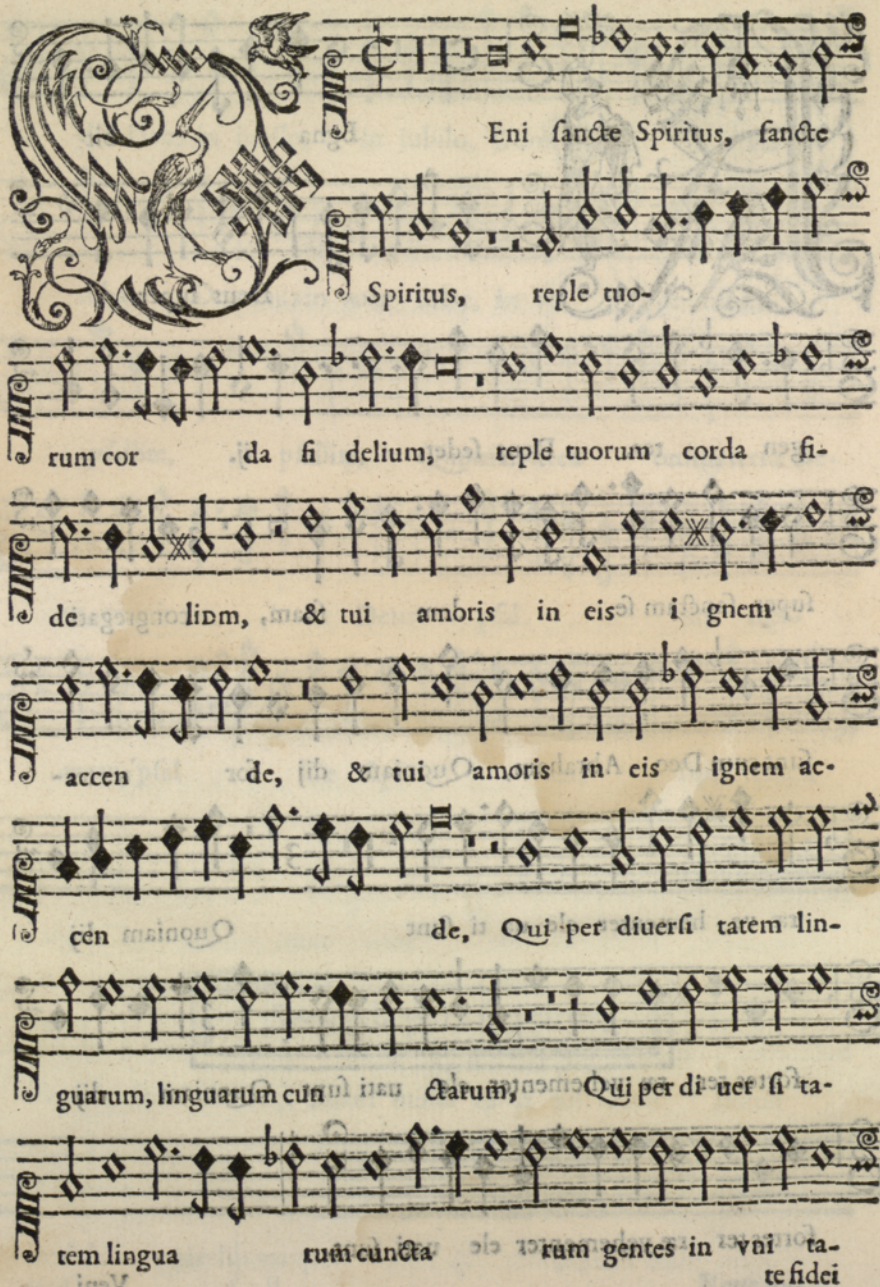 Eni ſancte Spiritus, ſancte
Spiritus, reple tuo-
rum cor da fi delium, reple tuorum corda fi-
de liɒm, & tui amoris in eis i gnem
accen de, & tui amoris in eis ignem ac-
cen de, Qui per diuerſi tatem lin-
guarum, linguarum cun ctarum, Qui per di uer ſi ta-
tem lingua rum cuncta rum gentes in vni ta-
te fidei